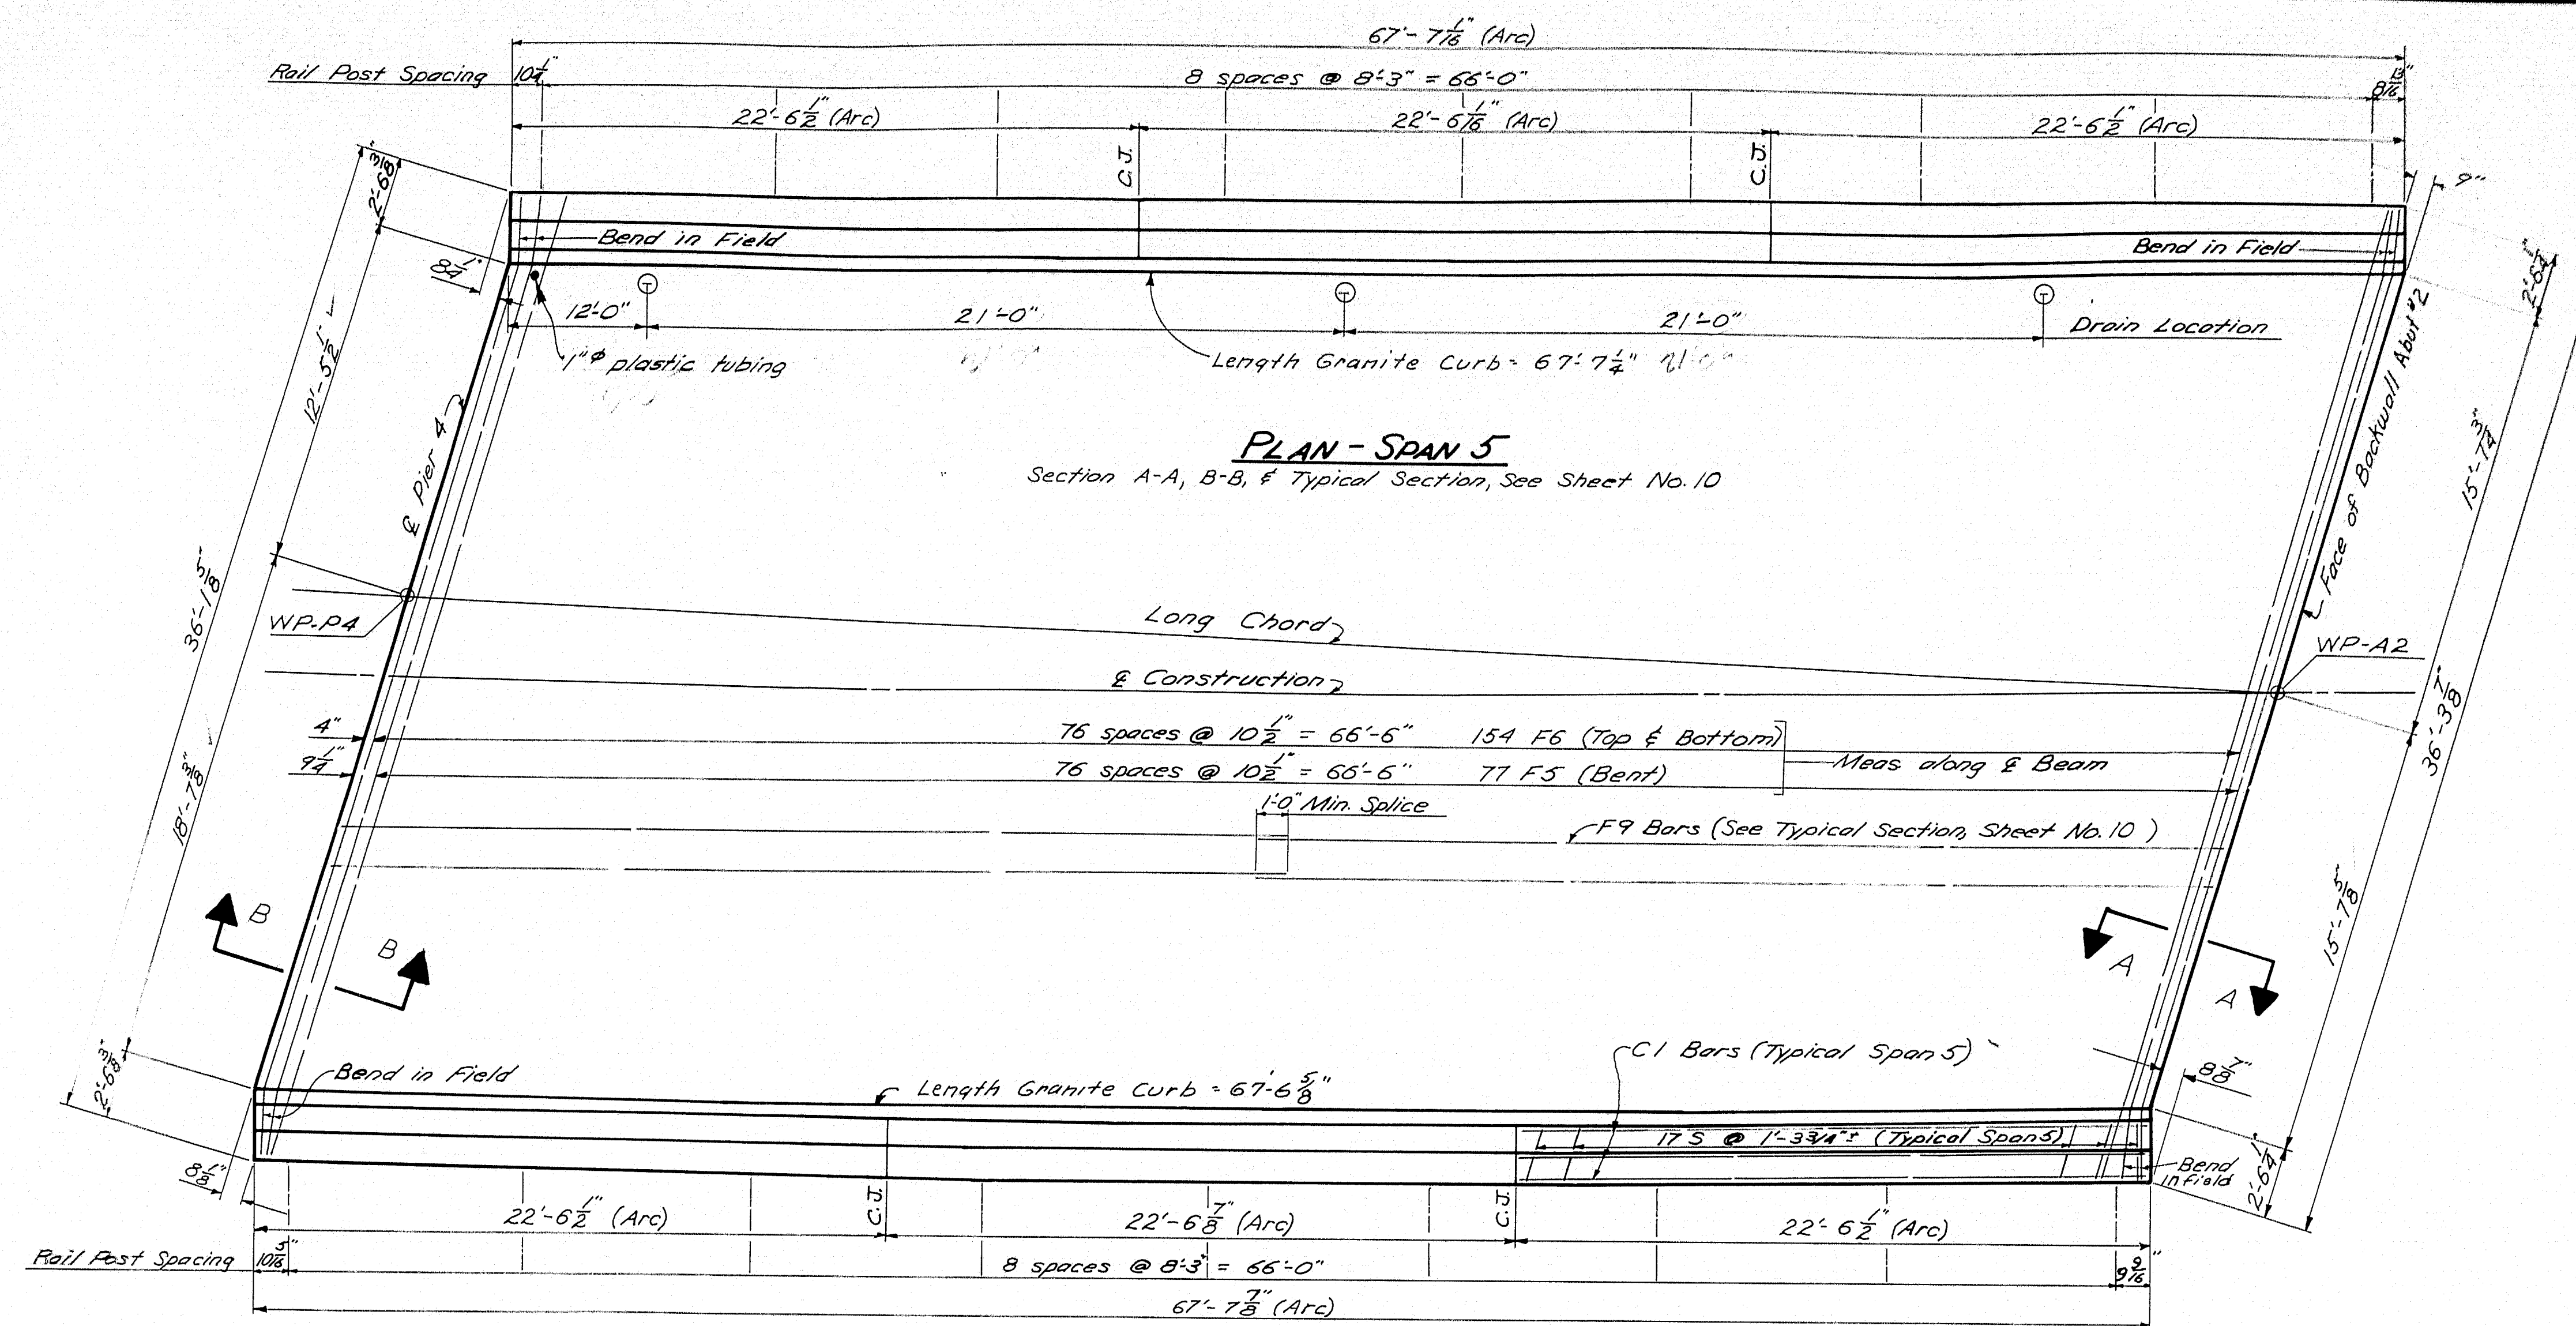 67'-7 1/16" (Arc)
Rail Post Spacing 10 1/4" 8 spaces @ 8'-3" = 66'-0" 8 13/16"
22'-6 1/2" (Arc) 22'-6 1/16" (Arc) 22'-6 1/2" (Arc)
C.J. C.J.
2'-6 3/8" 9"
Bend in Field Bend in Field
8 1/4" 2'-6 1/4"
12'-0" 21'-0" 21'-0" Drain Location
1" φ plastic tubing Length Granite Curb = 67'-7 1/4"
12'-5 1/2"
PLAN - SPAN 5
Section A-A, B-B, & Typical Section, See Sheet No. 10
℄ Pier 4
Face of Backwall Abut #2
15'-7 3/4"
36'-1 5/8"
WP-P4
Long Chord
WP-A2
℄ Construction
36'-3 7/8"
4" 76 spaces @ 10 1/2" = 66'-6" 154 F6 (Top & Bottom)
9 1/4" 76 spaces @ 10 1/2" = 66'-6" 77 F5 (Bent)
Meas. along ℄ Beam
18'-7 3/8"
1'-0" Min. Splice
F9 Bars (See Typical Section, Sheet No. 10)
15'-7 5/8"
B B A A
C1 Bars (Typical Span 5)
2'-6 3/8" Bend in Field Length Granite Curb = 67'-6 5/8" 8 7/8"
17 S @ 1'-3 3/4"± (Typical Span 5)
Bend
in Field
8 1/8" 2'-6 1/4"
C.J. C.J.
22'-6 1/2" (Arc) 22'-6 7/8" (Arc) 22'-6 1/2" (Arc)
Rail Post Spacing 10 5/16" 8 spaces @ 8'-3" = 66'-0" 9 9/16"
67'-7 7/8" (Arc)